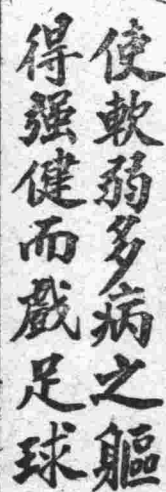 使軟弱多病之軀
得强健而戲足球